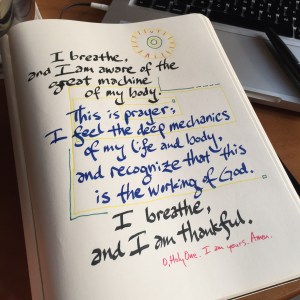 I breathe,
and I am aware of the
great machine
of my body.
This is prayer;
I feel the deep mechanics
of my life and body,
and recognize that this
is the working of God.
I breathe,
and I am thankful.
O, Holy One. I am yours. Amen.